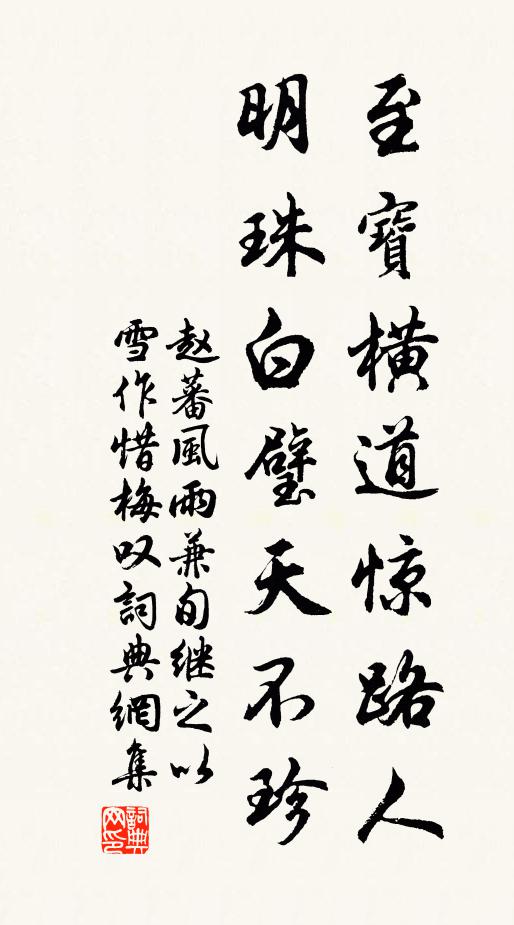 至寶橫道惊路人
明珠白璧天不珍
赵蕃風雨兼旬继之以
雪作惜梅叹詞典網集
詞典網印